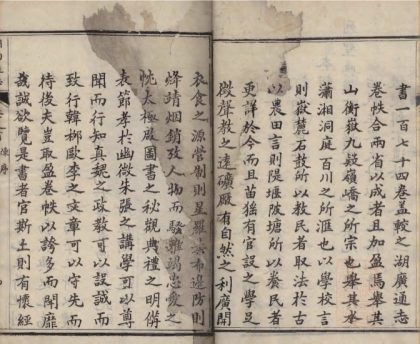 書一百七十四卷蓋較之湖廣通志
卷帙合兩省以成者且加盈焉舉其
山衡嶽九疑嶺嶠之所宗也舉其水
瀟湘洞庭百川之所滙也以學校言
則嶽麓石鼓所以教民者取法於古
以農田言則隄堰陂塘所以養民者
更詳於今而且苗猺有官設之學足
徵聲教之遠礦廠有自然之利廣開
衣食之源營制則星羅棊布邊防則
烽靖烟銷攷人物而騷雅竭忠愛之
忱太極啟圖書之秘觀典禮之明備
表節孝於幽微朱張之講學可以
聞而行知真魏之政教可以設誠而
致行韓栁歐李之文章可以守先而
待後夫豈取盈卷帙以誇多而鬬靡
哉誠欲覽是書者官斯土則有懷經
陳序